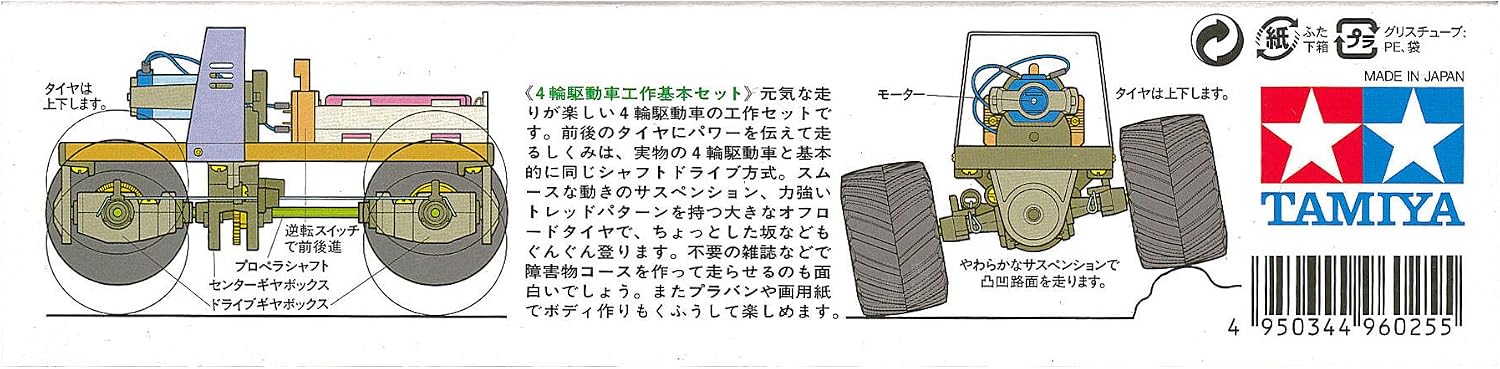 タイヤは
上下します。
逆転スイッチ
で前後進
プロペラシャフト
センターギヤボックス
ドライブギヤボックス
《４輪駆動車工作基本セット》元気な走
りが楽しい４輪駆動車の工作セットで
す。前後のタイヤにパワーを伝えて走
るしくみは、実物の４輪駆動車と基本
的に同じシャフトドライブ方式。スム
ースな動きのサスペンション、力強い
トレッドパターンを持つ大きなオフロ
ードタイヤで、ちょっとした坂なども
ぐんぐん登ります。不要の雑誌などで
障害物コースを作って走らせるのも面
白いでしょう。またプラバンや画用紙
でボディ作りもくふうして楽しめます。
モーター
タイヤは上下します。
やわらかなサスペンションで
凸凹路面を走ります。
紙
ふた
下箱
プラ
グリスチューブ:
PE、袋
MADE IN JAPAN
TAMIYA
4 950344 960255